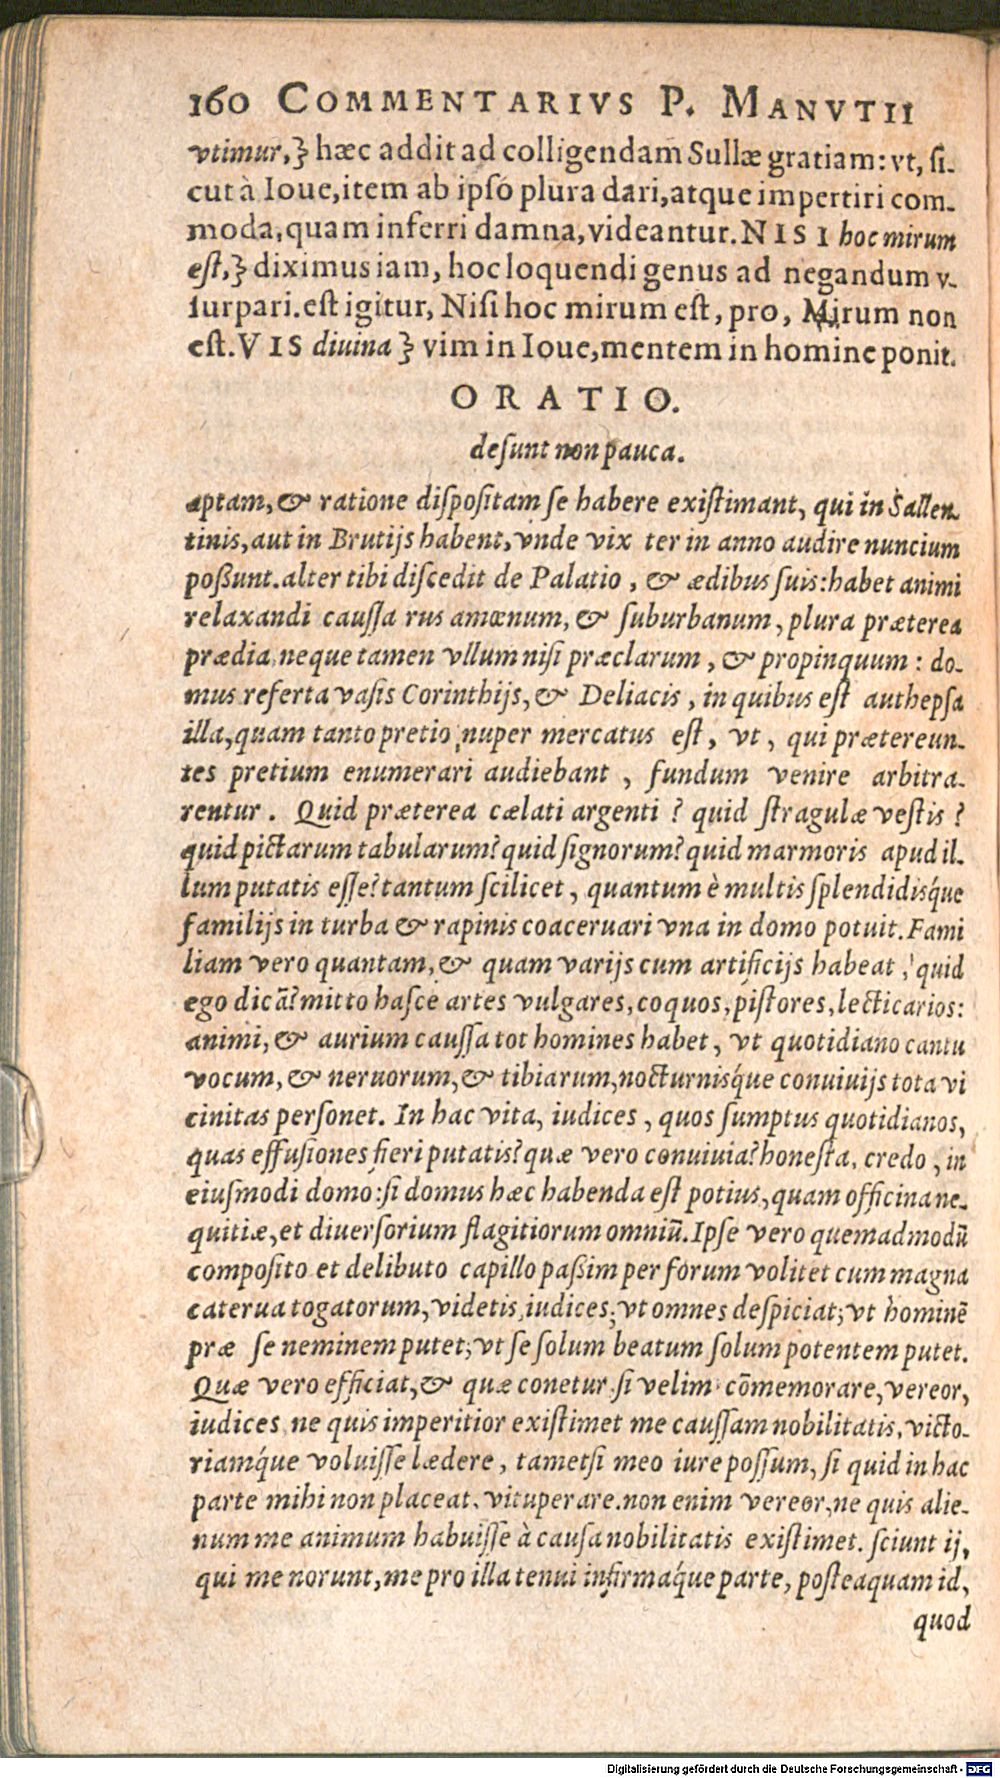 160 COMMENTARIVS P. MANVTII
vtimur,} hæc addit ad colligendam Sullæ gratiam: vt, si-
cut à Ioue, item ab ipso plura dari, atque impertiri com-
moda, quam inferri damna, videantur. NISI hoc mirum
est,} diximus iam, hoc loquendi genus ad negandum v-
surpari. est igitur, Nisi hoc mirum est, pro, Mirum non
est. VIS diuina } vim in Ioue, mentem in homine ponit.
ORATIO.
desunt non pauca.
aptam, & ratione dispositam se habere existimant, qui in Sallen-
tinis, aut in Brutijs habent, vnde vix ter in anno audire nuncium
possunt. alter tibi discedit de Palatio, & ædibus suis: habet animi
relaxandi caussa rus amœnum, & suburbanum, plura præterea
prædia, neque tamen vllum nisi præclarum, & propinquum: do-
mus referta vasis Corinthijs, & Deliacis, in quibus est authepsa
illa, quam tanto pretio, nuper mercatus est, vt, qui prætereun-
tes pretium enumerari audiebant, fundum venire arbitra-
rentur. Quid præterea cælati argenti? quid stragulæ vestis?
quid pictarum tabularum? quid signorum? quid marmoris apud il-
lum putatis esse? tantum scilicet, quantum è multis splendidisq́ue
familijs in turba & rapinis coaceruari vna in domo potuit. Fami
liam vero quantam, & quam varijs cum artificijs habeat, quid
ego dicã? mitto hasce artes vulgares, coquos, pistores, lecticarios:
animi, & aurium caussa tot homines habet, vt quotidiano cantu
vocum, & neruorum, & tibiarum, nocturnisq́ue conuiuijs tota vi
cinitas personet. In hac vita, iudices, quos sumptus quotidianos,
quas effusiones fieri putatis? quæ vero conuiuia? honesta, credo, in
eiusmodi domo: si domus hæc habenda est potius, quam officina ne-
quitiæ, et diuersorium flagitiorum omniũ. Ipse vero quemadmodũ
composito et delibuto capillo passim per forum volitet cum magna
caterua togatorum, videtis, iudices; vt omnes despiciat; vt hominẽ
præ se neminem putet; vt se solum beatum solum potentem putet.
Quæ vero efficiat, & quæ conetur si velim cõmemorare, vereor,
iudices ne quis imperitior existimet me caussam nobilitatis, victo-
riamq́ue voluisse lædere, tametsi meo iure possum, si quid in hac
parte mihi non placeat, vituperare. non enim vereor, ne quis alie-
num me animum habuisse à causa nobilitatis existimet. sciunt ij,
qui me norunt, me pro illa tenui infirmaq́ue parte, posteaquam id,
quod
Digitalisierung gefördert durch die Deutsche Forschungsgemeinschaft - DFG